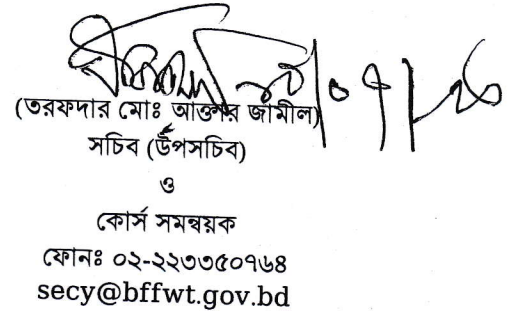 (তরফদার মোঃ আক্তার জামীল)
সচিব (উপসচিব)
ও
কোর্স সমন্বয়ক
ফোনঃ ০২-২২৩৩৫০৭৬৪
secy@bffwt.gov.bd